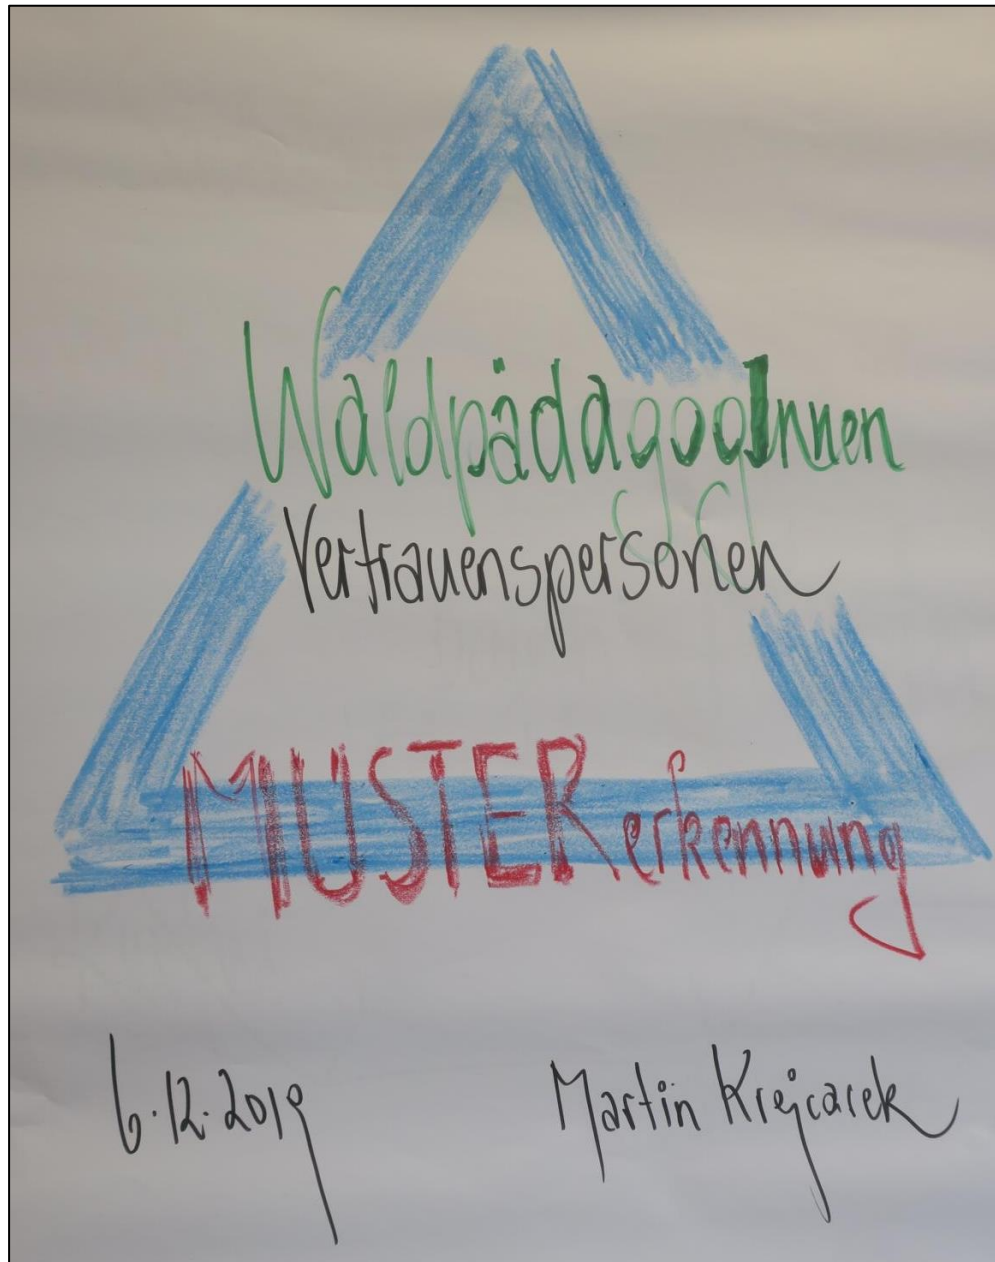 WaldpädagogInnen
Vertrauenspersonen
MUSTERerkennung
6.12.2019
Martin Krejcarek